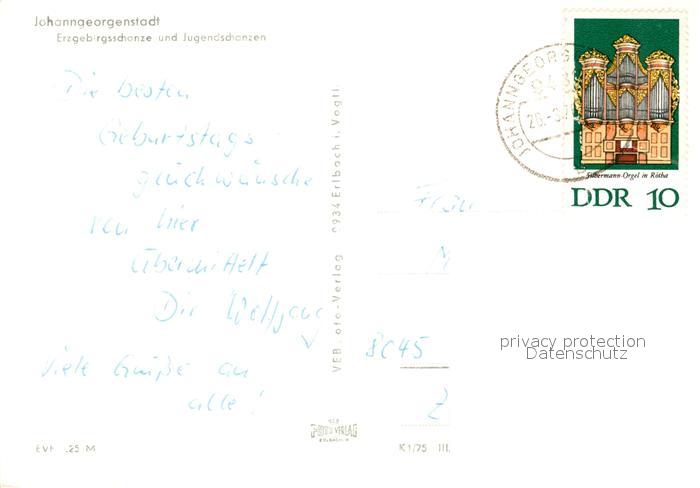 Johanngeorgenstadt
Erzgebirgsschanze und Jugendschanzen
Die besten
Geburtstags-
glückwünsche
von hier
übermittelt
Dir Wolfgang
Viele Grüße an
alle!
EVP ,25 M
VEB Foto-Verlag 9934 Erlbach i. Vogtl.
FOTO-VERLAG
ERLBACH
K 1/75 III.
JOHANNGEORG
Silbermann-Orgel in Rötha
DDR 10
Frau
M
8045
Z
privacy protection
Datenschutz